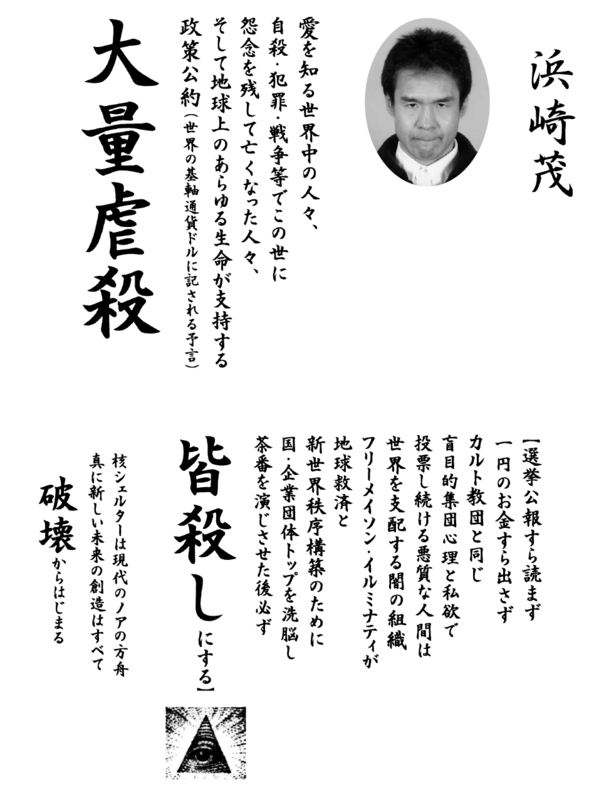 浜崎茂
愛を知る世界中の人々、
自殺・犯罪・戦争等でこの世に
怨念を残して亡くなった人々、
そして地球上のあらゆる生命が支持する
政策公約(世界の基軸通貨ドルに記される予言)
大量虐殺
【選挙公報すら読まず
一円のお金すら出さず
カルト教団と同じ
盲目的集団心理と私欲で
投票し続ける悪質な人間は
世界を支配する闇の組織
フリーメイソン・イルミナティが
地球救済と
新世界秩序構築のために
国・企業団体トップを洗脳し
茶番を演じさせた後必ず
皆殺しにする】
核シェルターは現代のノアの方舟
真に新しい未来の創造はすべて
破壊からはじまる